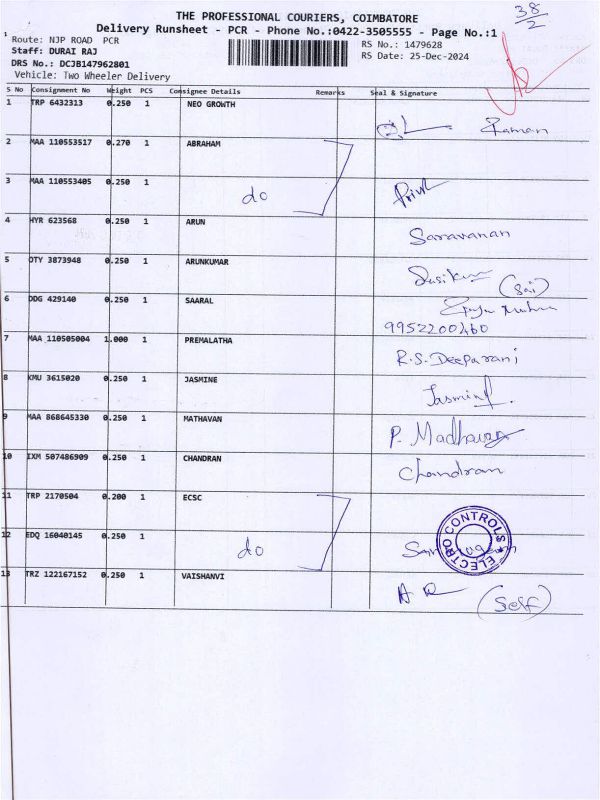 THE PROFESSIONAL COURIERS, COIMBATORE
38/2
Delivery Runsheet - PCR - Phone No.:0422-3505555 - Page No.:1
Route: NJP ROAD PCR
RS No.: 1479628
Staff: DURAI RAJ
RS Date: 25-Dec-2024
DRS No.: DCJB147962801
Vehicle: Two Wheeler Delivery
S No Consignment No Weight PCS Consignee Details Remarks Seal & Signature
1 TRP 6432313 0.250 1 NEO GROWTH Raman
2 MAA 110553517 0.270 1 ABRAHAM
3 MAA 110553405 0.250 1 do
4 HYR 623568 0.250 1 ARUN Saravanan
5 OTY 3873948 0.250 1 ARUNKUMAR (Sai)
6 DDG 429140 0.250 1 SAARAL
9952200460
7 MAA 110505004 1.000 1 PREMALATHA R.S. Deeparani
8 KMU 3615020 0.250 1 JASMINE Jasmine
9 MAA 868645330 0.250 1 MATHAVAN P. Madhavan
10 IXM 507486909 0.250 1 CHANDRAN Chandran
11 TRP 2170504 0.200 1 ECSC
12 EDQ 16040145 0.250 1 do ELECTRO CONTROLS
13 TRZ 122167152 0.250 1 VAISHANVI (Self)